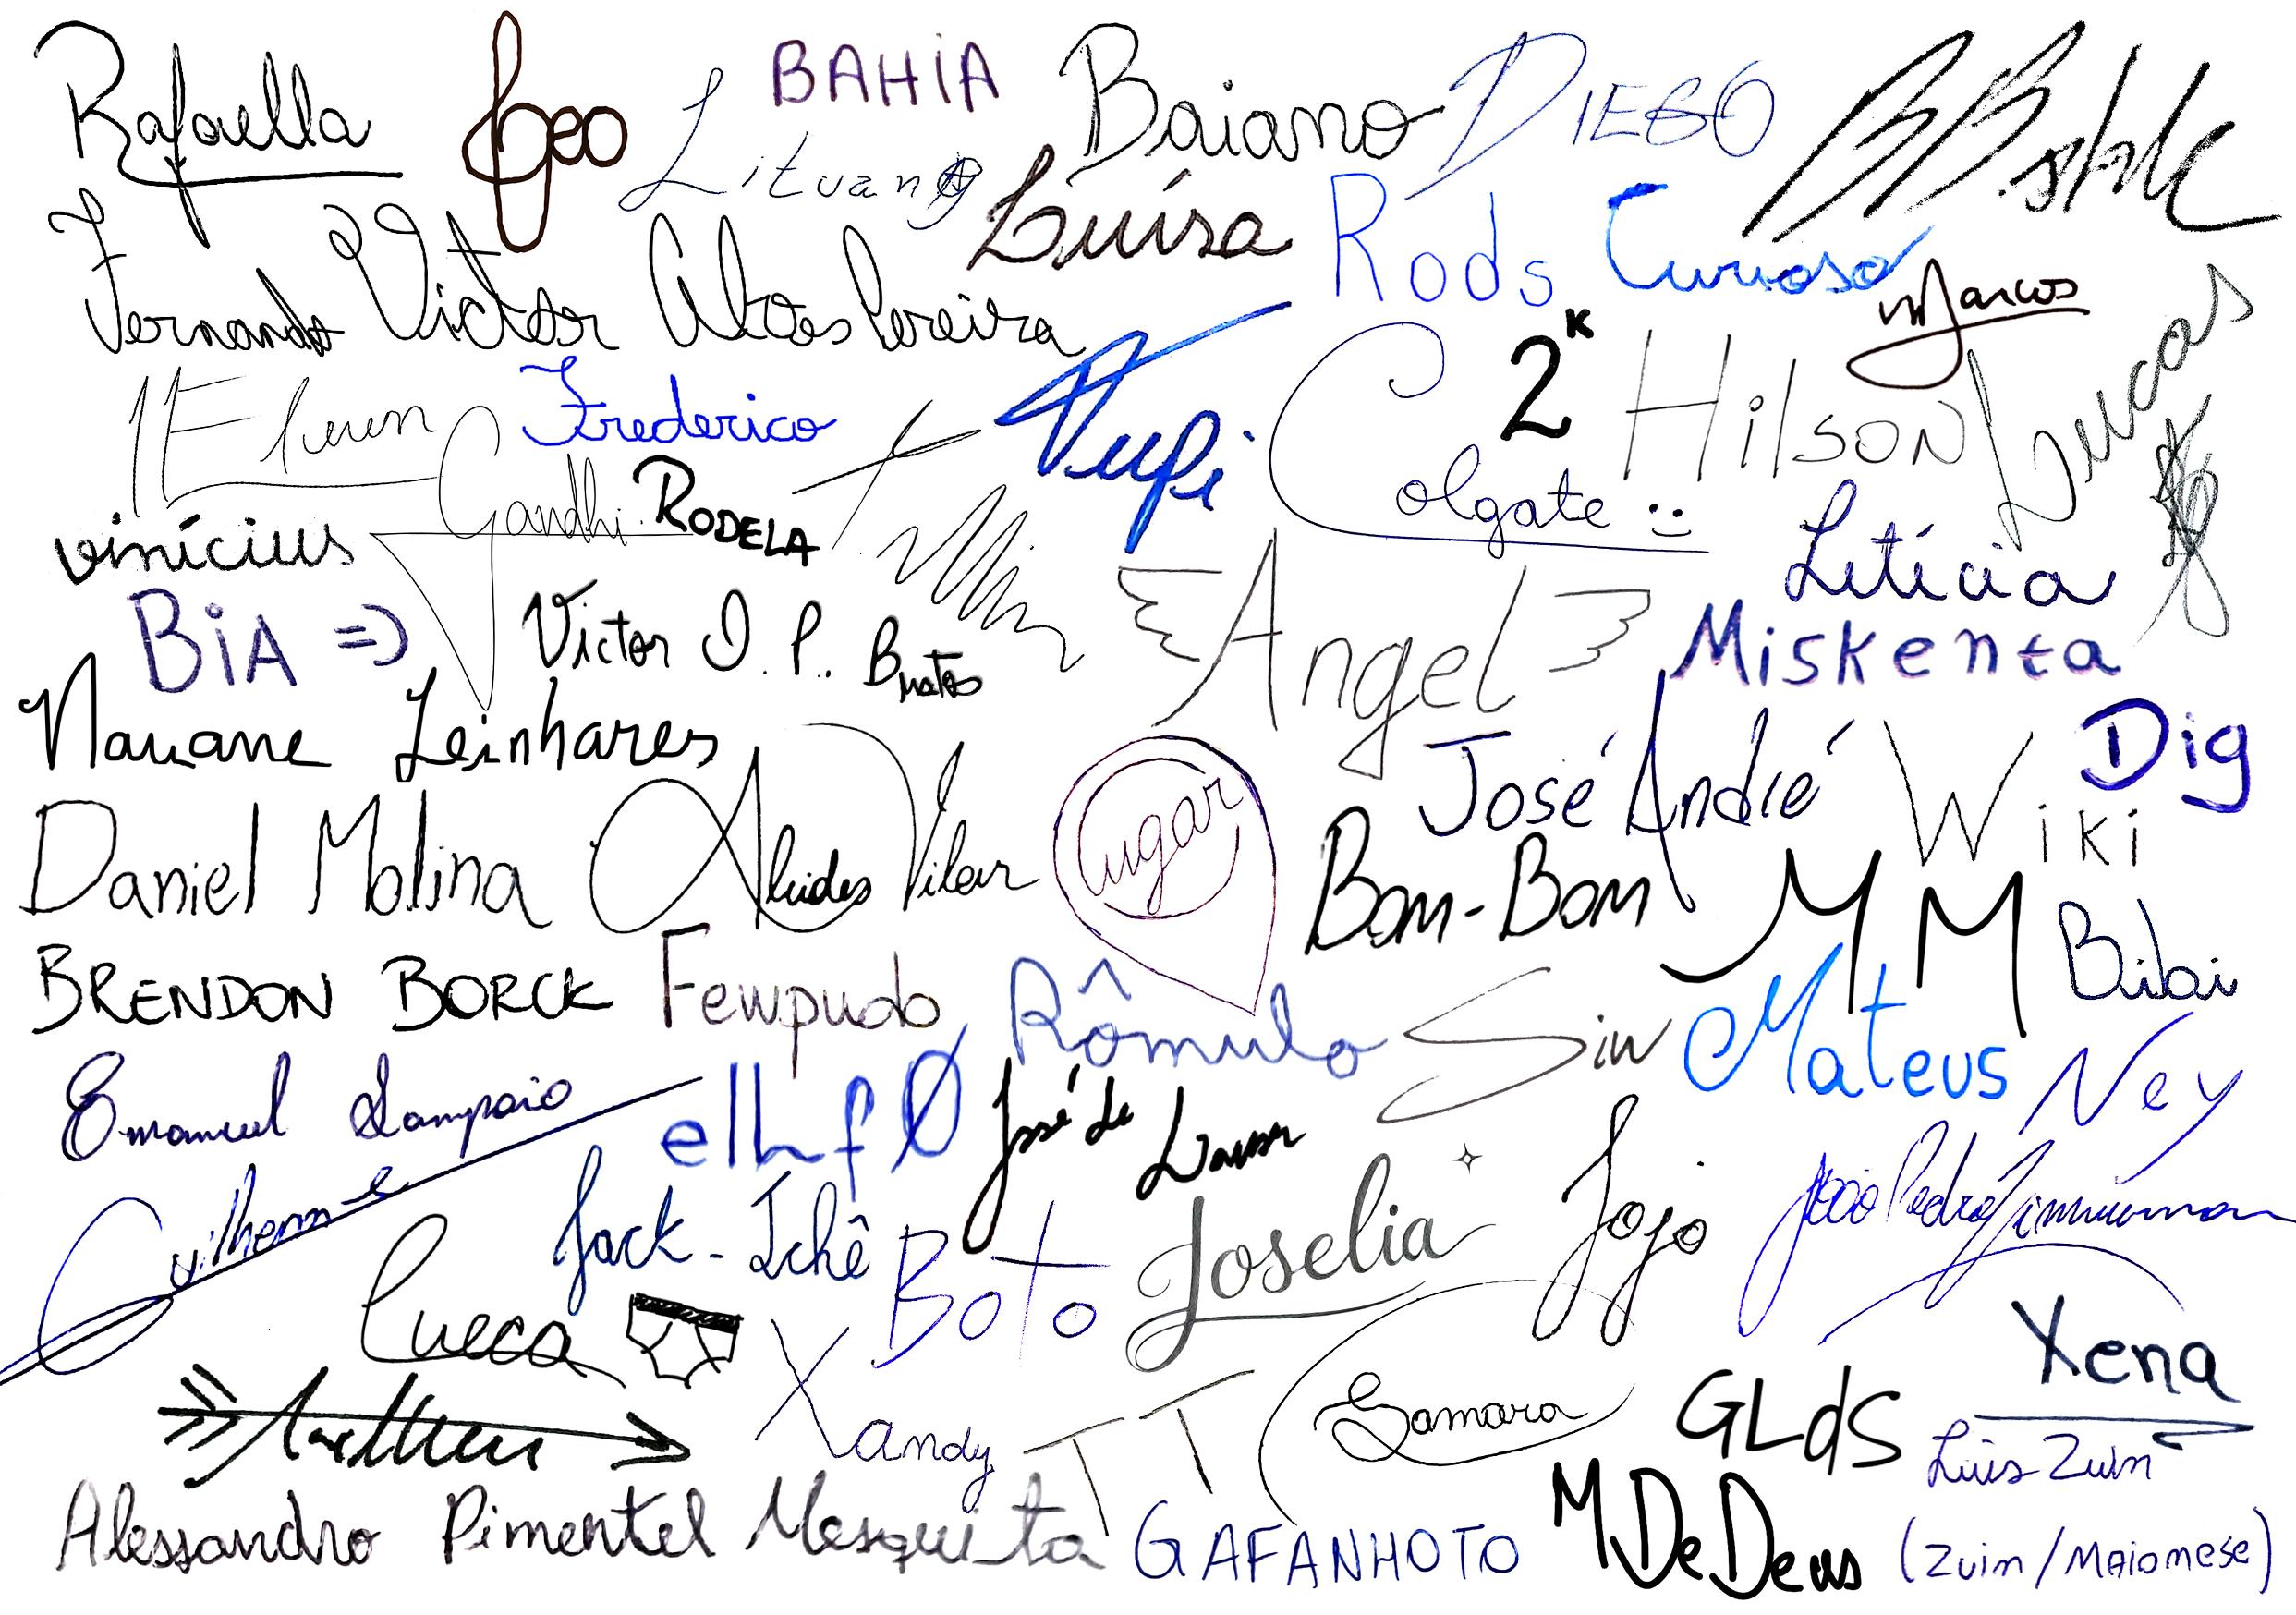 Rafaella
Geo
BAHIA
Lituano
Baiano
DIEGO
Luísa
Rods
Curioso
Marcos
Fernando Victor Alves Pereira
Lucas
Frederico
Tupi
2K
Hilson
Colgate :)
Gandhi
RODELA
vinícius
Letícia
BiA =>
Victor O. P. Bmatos
Angel
Miskenta
Nauane Leinhares
José André
Wiki
Dig
Daniel Molina
Alcides Vilar
Lugar
Bom-Bom
MM
Bibai
BRENDON BORCK
Fewpudo
Rômulo
Siw
Mateus
Ney
Emanuel Sampaio
elhf0
José de
Guilherme
Jack-Tchê
Boto
Joselia
Jojo
João Pedro Zimmermann
Cueca
Xena
Arthur
Xandy
TT
Samara
GLdS
Luis Zuim
(Zuim/MAiomese)
Alessandro Pimentel Mesquita
GAFANHOTO
MDeDeus